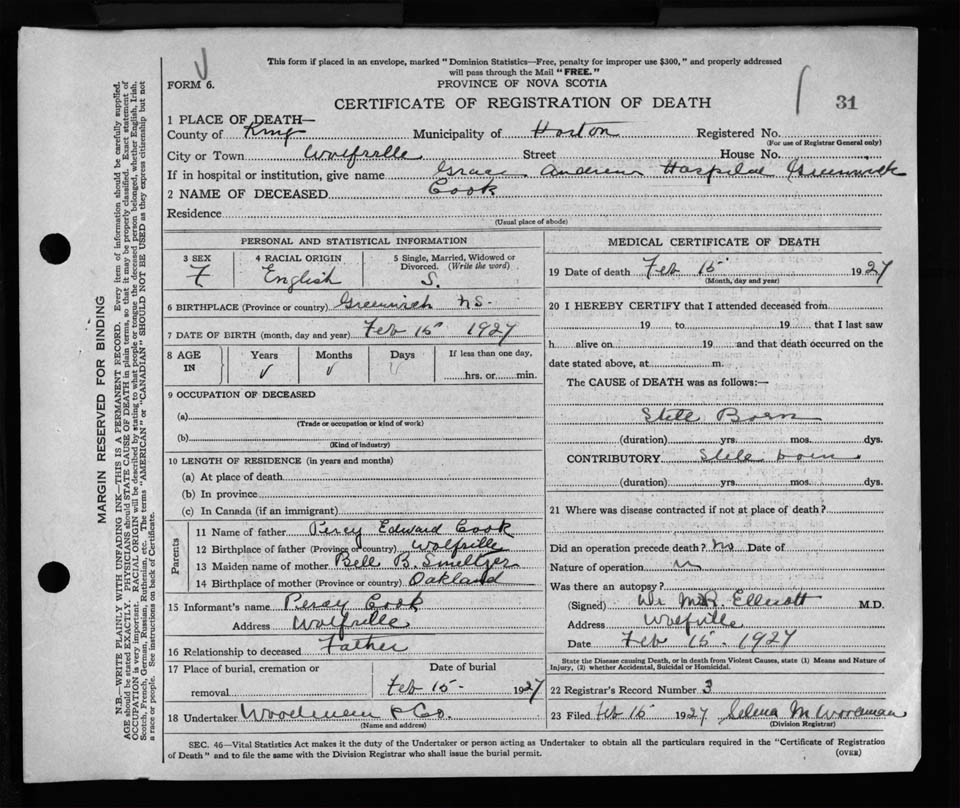 This form if placed in an envelope, marked "Dominion Statistics—Free, penalty for improper use $300," and properly addressed
will pass through the Mail "FREE."
FORM 6.
PROVINCE OF NOVA SCOTIA
CERTIFICATE OF REGISTRATION OF DEATH
31
1 PLACE OF DEATH—
County of Kings Municipality of Horton Registered No.
(For use of Registrar General only)
City or Town Wolfville Street House No.
If in hospital or institution, give name Grace Hospital Greenwich
2 NAME OF DECEASED Cook
Residence
(Usual place of abode)
PERSONAL AND STATISTICAL INFORMATION
3 SEX F
4 RACIAL ORIGIN English
5 Single, Married, Widowed or Divorced. (Write the word) S.
6 BIRTHPLACE (Province or country) Greenwich N.S.
7 DATE OF BIRTH (month, day and year) Feb 15 1927
8 AGE IN Years Months Days If less than one day, hrs. or min.
9 OCCUPATION OF DECEASED
(a)
(Trade or occupation or kind of work)
(b)
(Kind of industry)
10 LENGTH OF RESIDENCE (in years and months)
(a) At place of death
(b) In province
(c) In Canada (if an immigrant)
Parents
11 Name of father Percy Edward Cook
12 Birthplace of father (Province or country) Wolfville
13 Maiden name of mother Bell B. Smeltzer
14 Birthplace of mother (Province or country) Oakland
15 Informant's name Percy Cook
Address Wolfville
16 Relationship to deceased Father
17 Place of burial, cremation or removal
Date of burial
Feb 15 - 1927
18 Undertaker Woodman & Co.
(Name and address)
MEDICAL CERTIFICATE OF DEATH
19 Date of death Feb 15 1927
(Month, day and year)
20 I HEREBY CERTIFY that I attended deceased from
19 to 19 that I last saw
h alive on 19 and that death occurred on the
date stated above, at m.
The CAUSE of DEATH was as follows:—
Still Born
(duration) yrs. mos. dys.
CONTRIBUTORY Still born
(duration) yrs. mos. dys.
21 Where was disease contracted if not at place of death?
Did an operation precede death? No Date of
Nature of operation
Was there an autopsy?
(Signed) M.R. Elliott M.D.
Address Wolfville
Date Feb 15 - 1927
State the Disease causing Death, or in death from Violent Causes, state (1) Means and Nature of
Injury, (2) whether Accidental, Suicidal or Homicidal.
22 Registrar's Record Number 3
23 Filed Feb 15 1927 Selena M Woodman
(Division Registrar)
SEC. 46—Vital Statistics Act makes it the duty of the Undertaker or person acting as Undertaker to obtain all the particulars required in the "Certificate of Registration
of Death" and to file the same with the Division Registrar who shall issue the burial permit.
(OVER)
MARGIN RESERVED FOR BINDING
N.B.—WRITE PLAINLY, WITH UNFADING INK—THIS IS A PERMANENT RECORD. Every item of information should be carefully supplied.
AGE should be stated EXACTLY. PHYSICIANS should STATE CAUSE OF DEATH in plain terms, so that it may be properly classified. Exact statement of
OCCUPATION is very important. RACIAL ORIGIN will be described by stating to what people or tongue the deceased person belonged, whether English, Irish,
Scotch, French, German, Russian, Ruthenian, etc. The terms "AMERICAN" or "CANADIAN" SHOULD NOT BE USED as they express citizenship but not
a race or people. See instructions on back of Certificate.